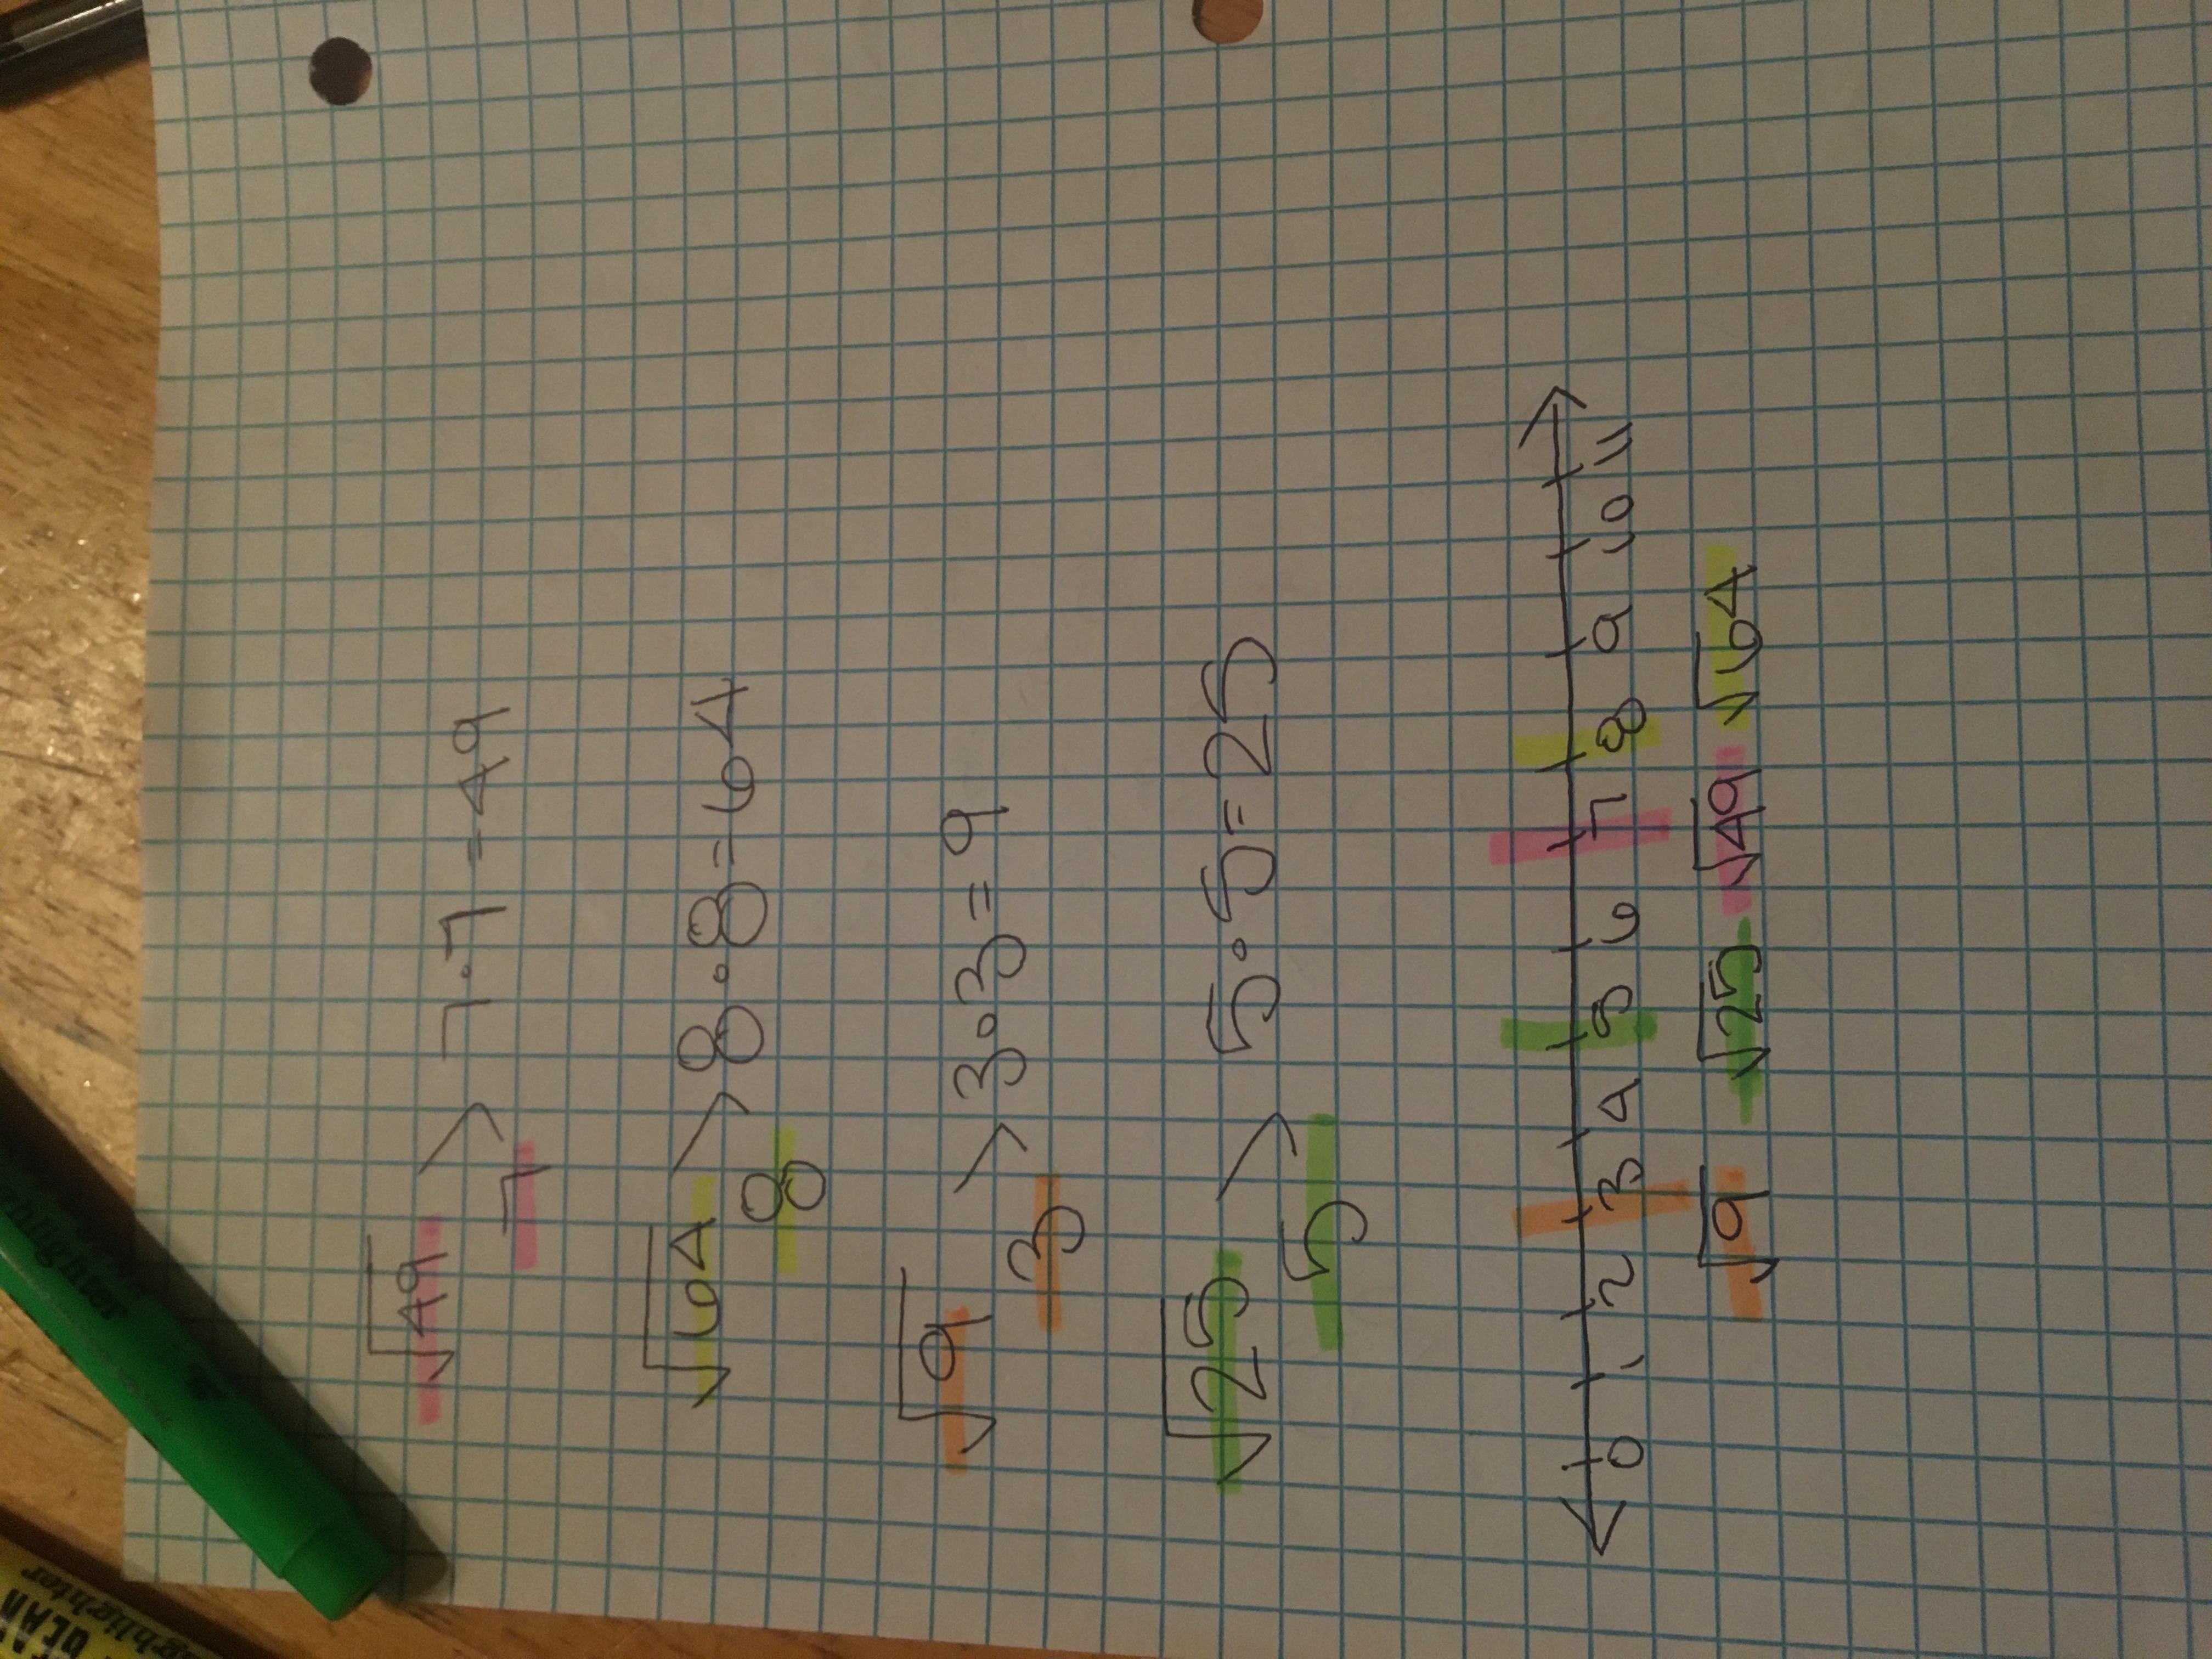 √49 > 7·7=49
7
√64 > 8·8=64
8
√9 > 3·3=9
3
√25 > 5·5=25
5
0 1 2 3 4 5 6 7 8 9 10 11
√9 √25 √49 √64
highlighter